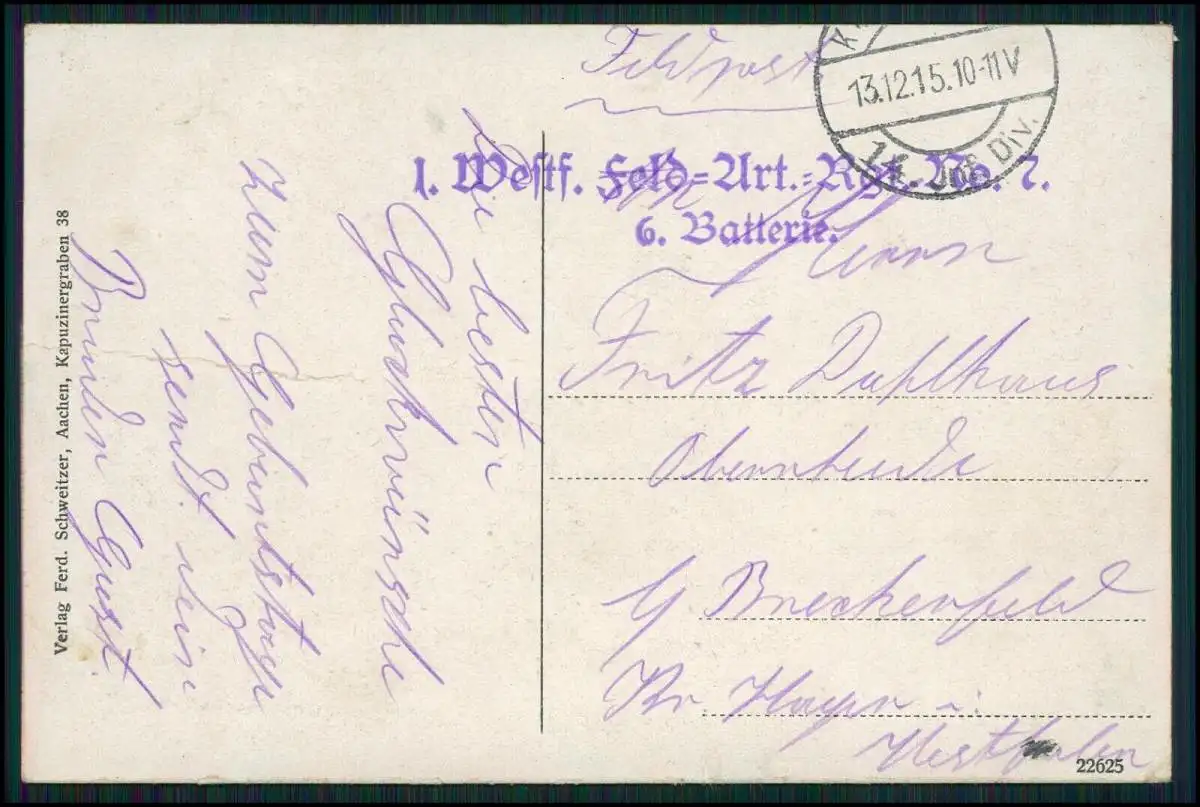 Feldpost
13.12.15.10-11V
Inf. Div.
1. Westf. Feld-Art.-Rgt. No. 7.
6. Batterie.
Herrn
Fritz Dahlhaus
b/ Breckerfeld
Kr. Hagen i.
Westfalen
22625
Die besten
Glückwünsche
zum Geburtstage
sendt dein
Bruder Gust
Verlag Ferd. Schweitzer, Aachen, Kapuzinergraben 38